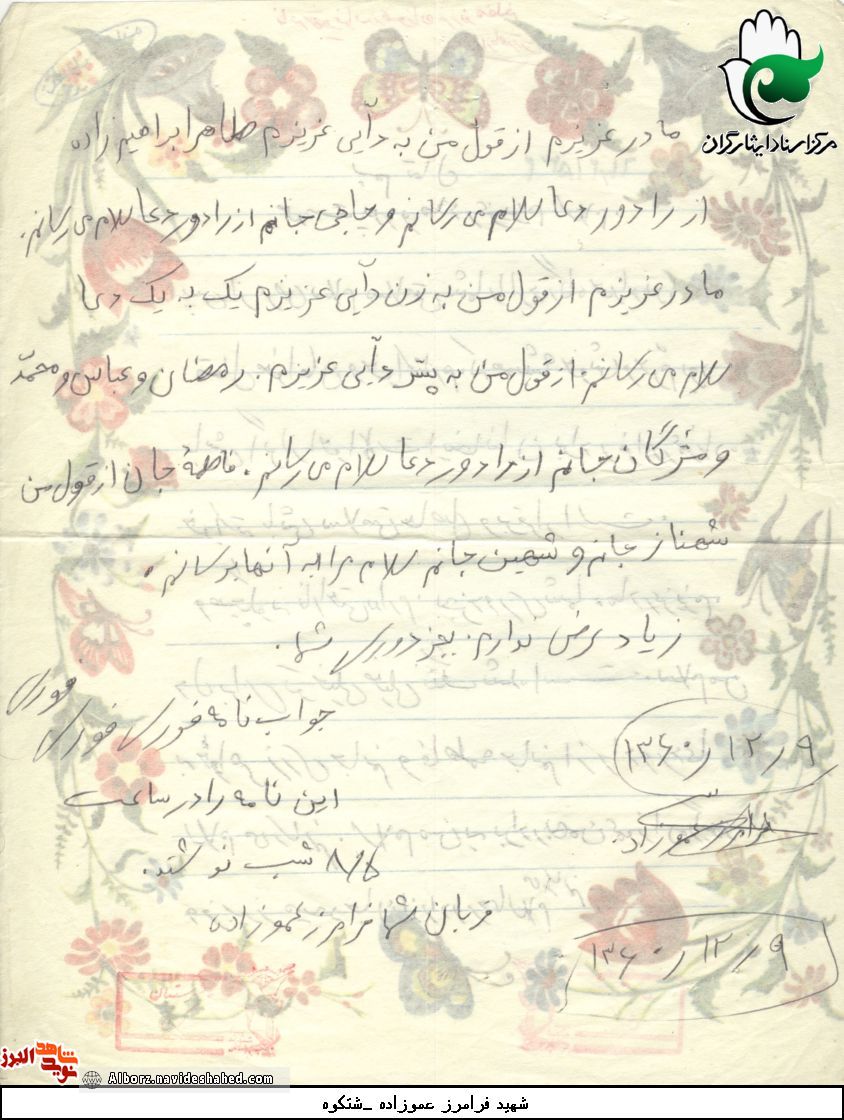 مرکز اسناد ایثارگران
مادر عزیزم از قول من به دایی عزیزم طاهر ابراهیم زاده
از را دور دعا سلام می رسانم و حاجی جانم از را دور دعا سلام می رسانم.
مادر عزیزم از قول من به زن دایی عزیزم یک به یک دعا
سلام می رسانم. از قول من به پسر دایی عزیزم. رمضان و عباس و محمد
و مژگان جانم از را دور دعا سلام می رسانم. فاطمۀ جان از قول من
شهناز جانم و شهین جانم سلام مرا به آنها برسانم.
زیاد عرض ندارم. بجز دوری شما.
جواب نامه فوری فوری فوری
۹ر۱۲ر۱۳۶۰
این نامه را در ساعت
فرامرز عموزاده
شب نوشتم.
قربان شما فرامرز عموزاده
۹ر۱۲ر۱۳۶۰
نوید شاهد البرز
Alborz.navideshahed.com
شهید فرامرز عموزاده _شتکوه